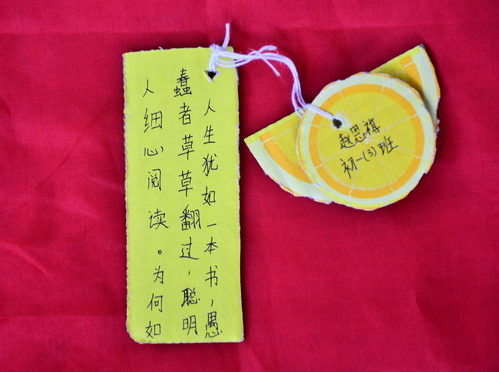 人生犹如一本书，愚
蠢者草草翻过，聪明
人细心阅读。为何如
赵思祺
初一(3)班